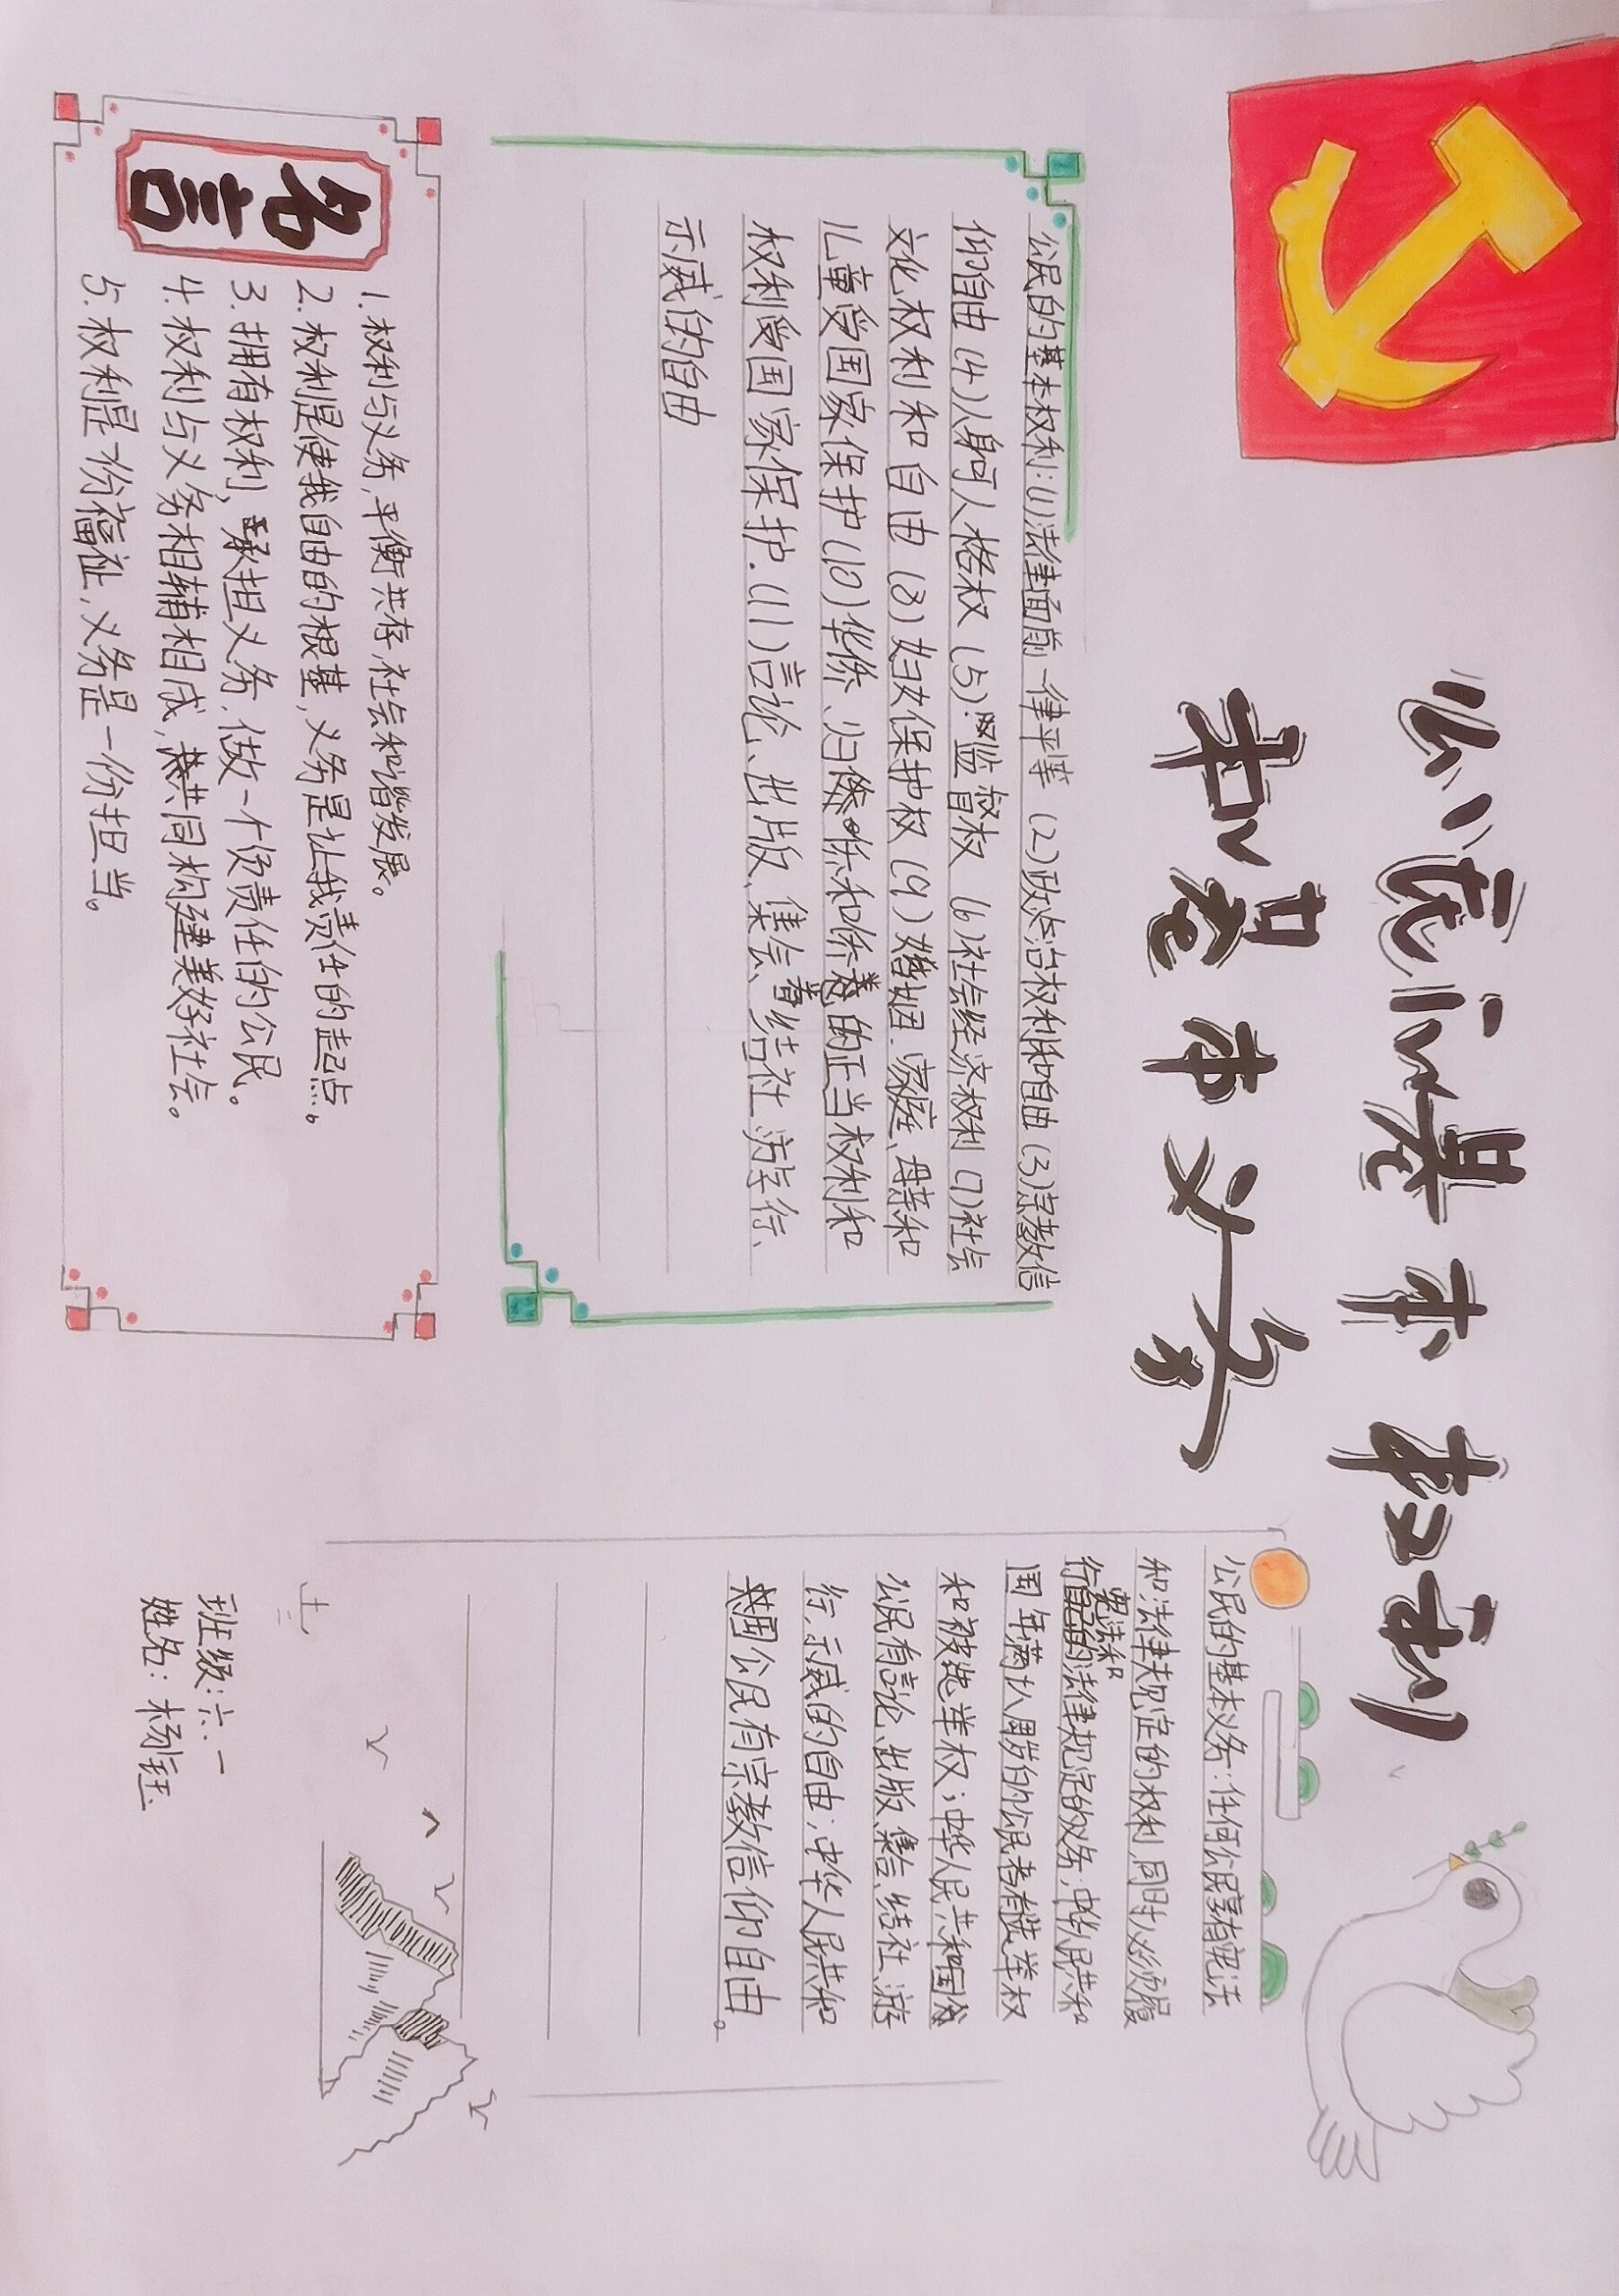 公民的基本权利
和基本义务
公民的基本权利:(1)法律面前一律平等 (2)政治权利和自由 (3)宗教信
仰自由 (4)人身和人格权 (5)监督权 (6)社会经济权利 (7)社会
文化权利和自由 (8)妇女保护权 (9)婚姻.家庭、母亲和
儿童受国家保护 (10)华侨、归侨和侨眷的正当权利和
权利受国家保护.(11)言论、出版、集会、结社、游行、
示威的自由
公民的基本义务:任何公民享有宪法
和法律规定的权利,同时必须履
行宪法和法律规定的义务;中华人民共和
国年满十八周岁的公民者有选举权
和被选举权;中华人民共和国
公民有言论、出版、集会、结社、游
行、示威的自由;中华人民共和
国公民有宗教信仰自由。
名言
1.权利与义务,平衡共存,社会和谐发展。
2.权利是使我自由的根基,义务是让我责任的起点。
3.拥有权利,承担义务,做一个负责任的公民。
4.权利与义务相辅相成,共同构建美好社会。
5.权利是一份福祉,义务是一份担当。
班级:六.一
姓名:杨钰